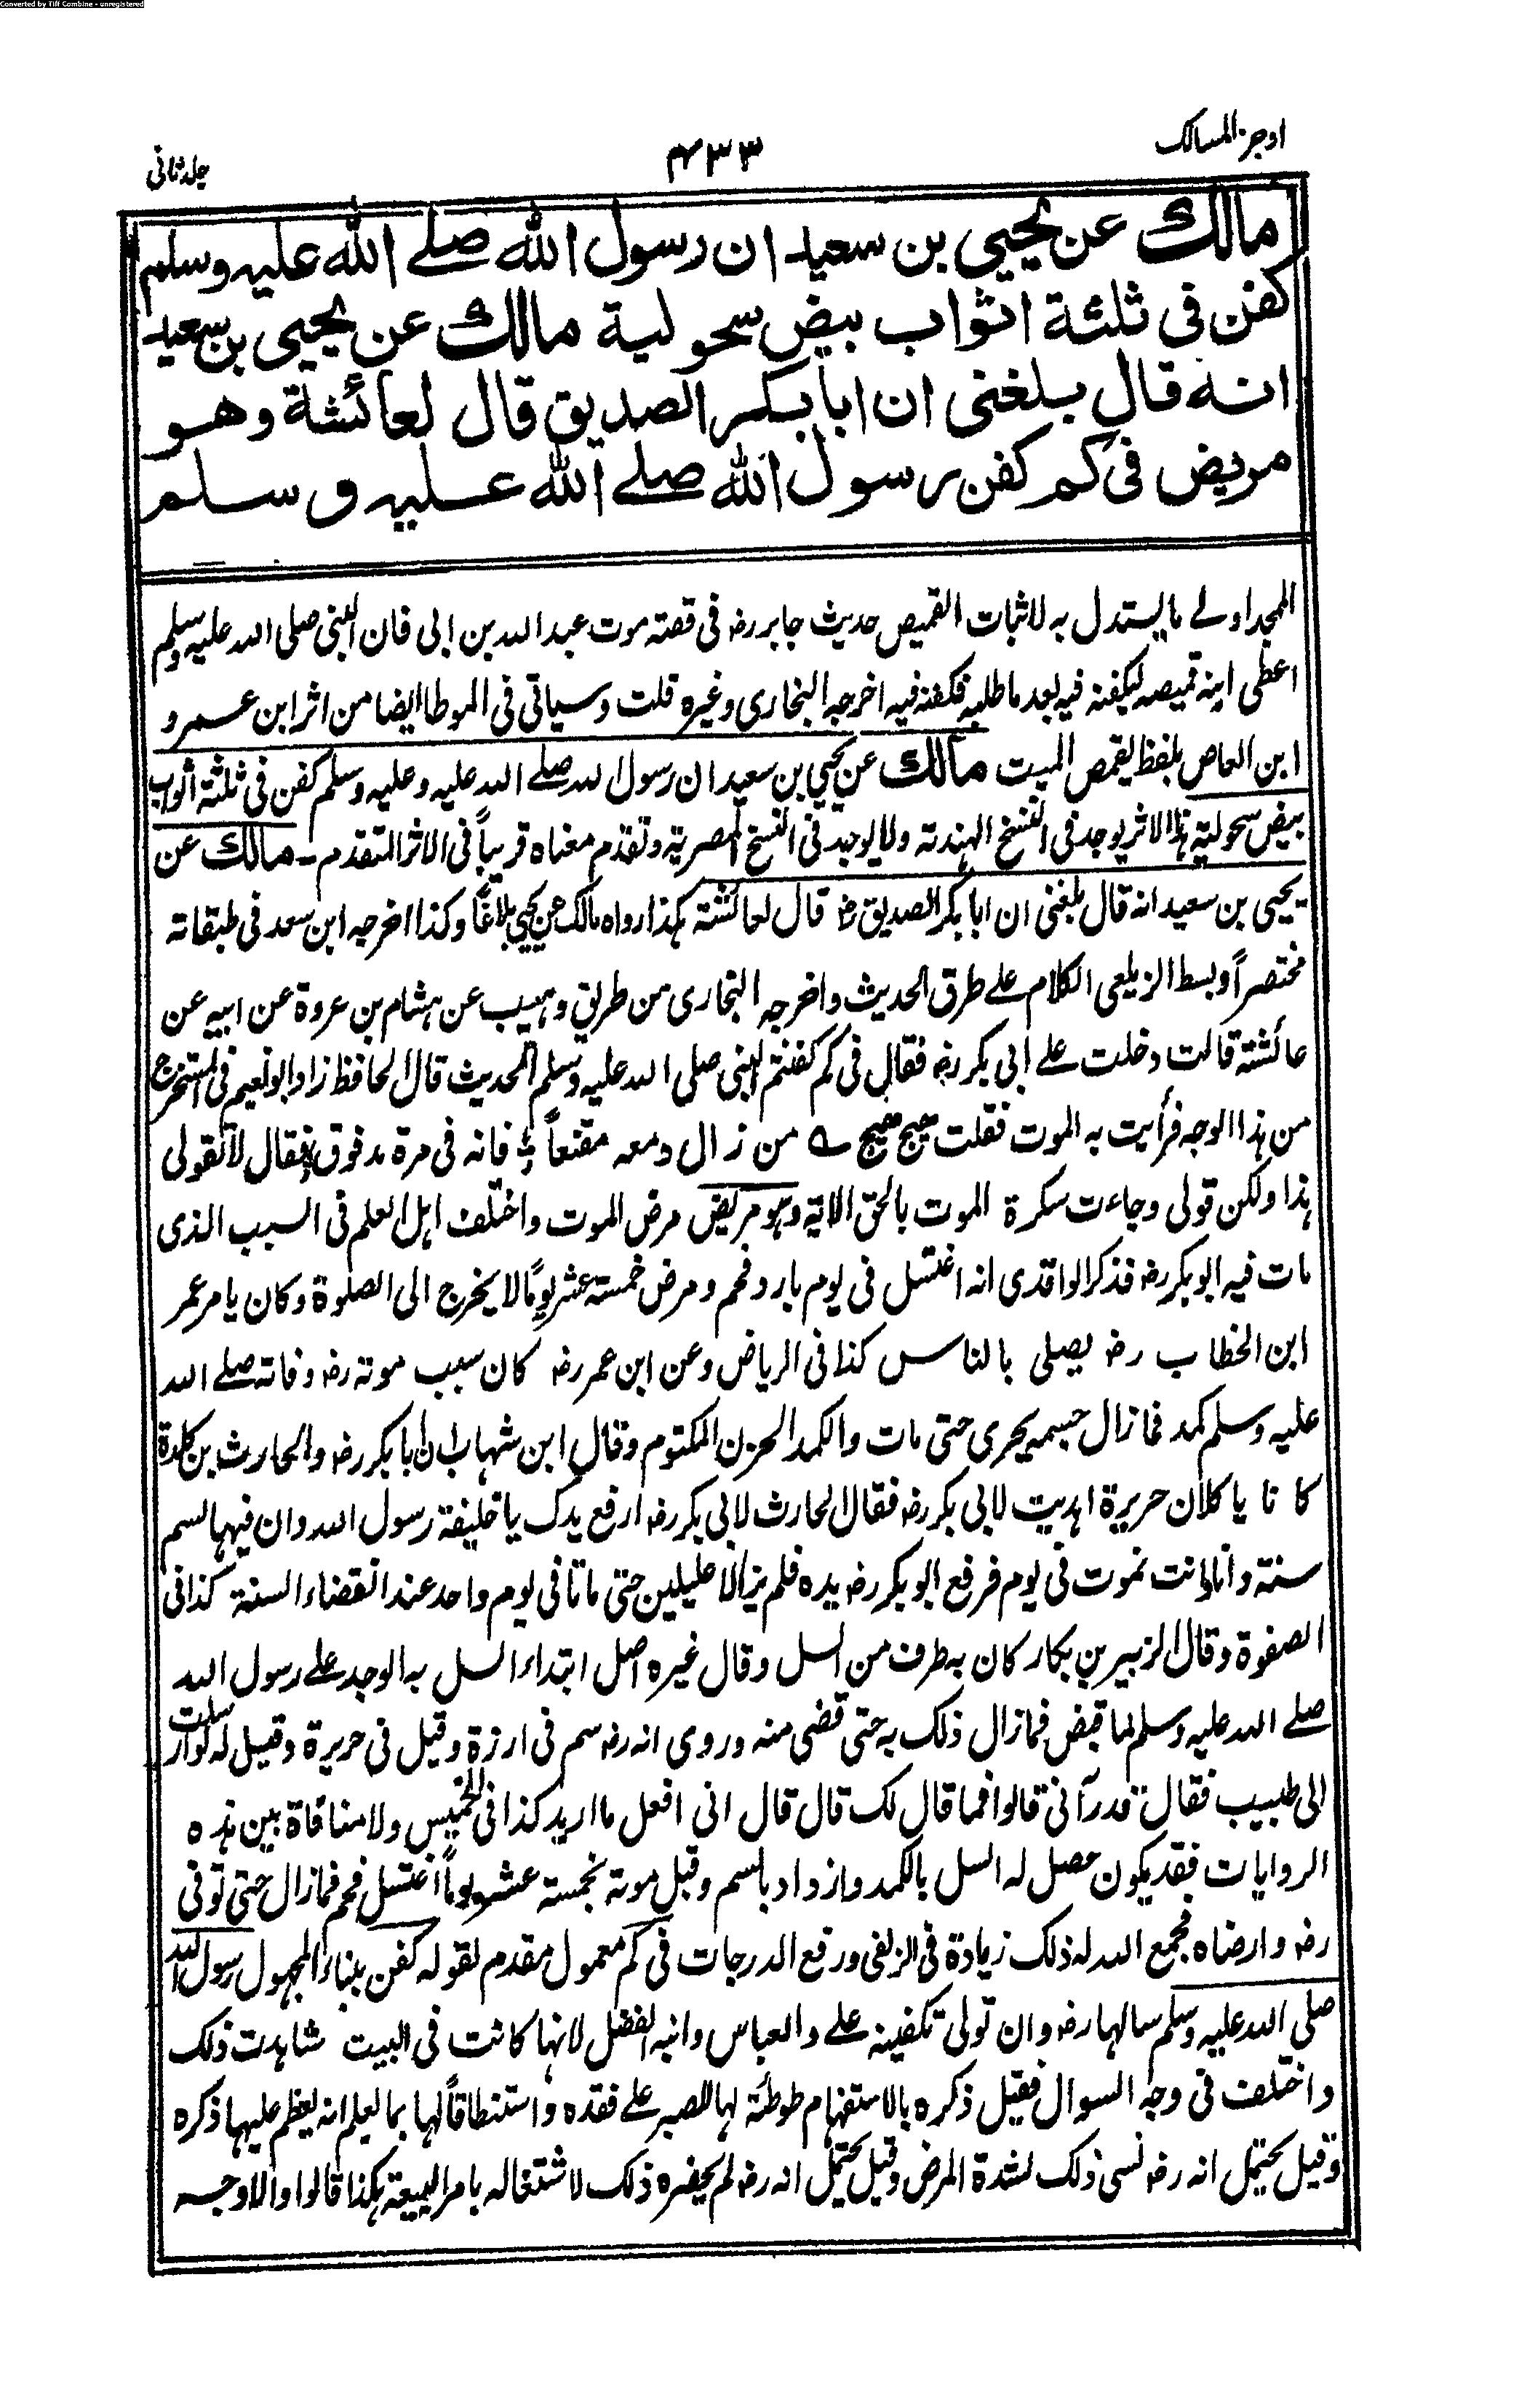 Converted by Tiff Combine - unregistered
اوجز المسالك
۴۳۳
جلد ثانی
مالك عن يحيي بن سعيد ان رسول الله صلے الله عليه وسلم
كفن فی ثلثة اثواب بيض سحولية مالك عن يحيی بن سعيد
انه قال بلغنی ان ابا بكر الصديق قال لعائشة وهو
مريض فی كم كفن رسول الله صلے الله عليه وسلم
المجد اولے ما يستدل به لاثبات القميص حديث جابر رضـ فی قصته موت عبد الله بن ابی فان النبی صلی الله عليه وسلم
اعطی ابنه قميصه ليكفنه فيه بعد ما طلبه فكفنه فيه اخرجه البخاری وغيره قلت وسياتی فی الموطا ايضا من اثر ابن عمرو
ابن العاص بلفظ يقمص الميت مالك عن يحيي بن سعيد ان رسول الله صلے الله عليه وعليه وسلم كفن فی ثلثة أثواب
بيض سحولية هذا الاثر يوجد فی النسخ الهندته ولا يوجد فی النسخ المصرية وتقدم معناه قريباً فی الاثر المتقدم ـ مالك عن
يحيی بن سعيد انه قال بلغنی ان ابا بكر الصديق رضـ قال لعائشة هكذا رواه مالك عن يحيي بلاغاً وكذا اخرجه ابن سعد فی طبقاته
مختصراً وبسط الزيلعی الكلام علے طرق الحديث واخرجه البخاری من طريق وهيب عن هشام بن عروة عن ابيه عن
عائشة قالت دخلت علے ابی بكر رضـ فقال فی كم كفنتم النبی صلی الله عليه وسلم الحديث قال الحافظ زاد ابو نعيم فی المستخرج
من هذا الوجه فرأيت به الموت فقلت هيج هيج ؎ من زال دمعه مقنعاً ؛ فانه فی مرة مدفوق ؛ فقال لا تقولی
هذا ولكن قولی وجاءت سكرة الموت بالحق الاية وهو مريض مرض الموت واختلف اهل العلم فی السبب الذی
مات فيه ابو بكر رضـ فذكر الواقدی انه اغتسل فی يوم بارد فحم ومرض خمسة عشر يومًا لا يخرج الی الصلوة وكان يامر عمر
ابن الخطاب رضـ يصلی بالناس كذا فی الرياض وعن ابن عمر رضـ كان سبب موته رضـ وفاته صلے الله
عليه وسلم كمد فما زال جسمه يحری حتی مات والكمد الحزن المكتوم وقال ابن شهاب ان ابا بكر رضـ والحارث بن كلدة
كانا ياكلان حريرة اهديت لابی بكر رضـ فقال الحارث لابی بكر رضـ ارفع يدك يا خليفة رسول الله وان فيها لسم
سنته وانا وانت نموت فی يوم فرفع ابو بكر رضـ يده فلم يزالا عليلين حتی ماتا فی يوم واحد عند انقضاء السنة كذا فی
الصفوة وقال الزبير بن بكار كان به طرف من السل وقال غيره اصل ابتداء السل به الوجد علے رسول الله
صلے الله عليه وسلم لما قبض فما زال ذلك به حتی قضی منه وروی انه رضـ سم فی ارزة وقيل فی حريرة وقيل له لو ارسلت
الی طبيب فقال قد رآنی قالوا فما قال لك قال قال انی افعل ما اريد كذا فی الخميس ولا منافاة بين هذه
الروايات فقد يكون حصل له السل بالكمد وازداد بالسم وقبل موته بخمسة عشر يوماً اغتسل فحم فما زال حتی توفی
رضـ وارضاه فجمع الله له ذلك زيادة فی الزلفی ورفع الدرجات فی كم معمول مقدم لقوله كفن ببناء المجهول رسول الله
صلی الله عليه وسلم سالها رضـ وان تولی تكفينه علے والعباس وابنه الفضل لانها كانت فی البيت شاهدت ذلك
واختلف فی وجه السوال فقيل ذكره بالاستفهام طوطئة لها للصبر علے فقده واستنطاقاً لها بما يعلم انه يعظم عليها ذكره
وقيل يحتمل انه رضـ نسی ذلك لشدة المرض وقيل يحتمل انه رضـ لم يحضره ذلك لاشتغاله بامر البيعة هكذا قالوا والاوجه